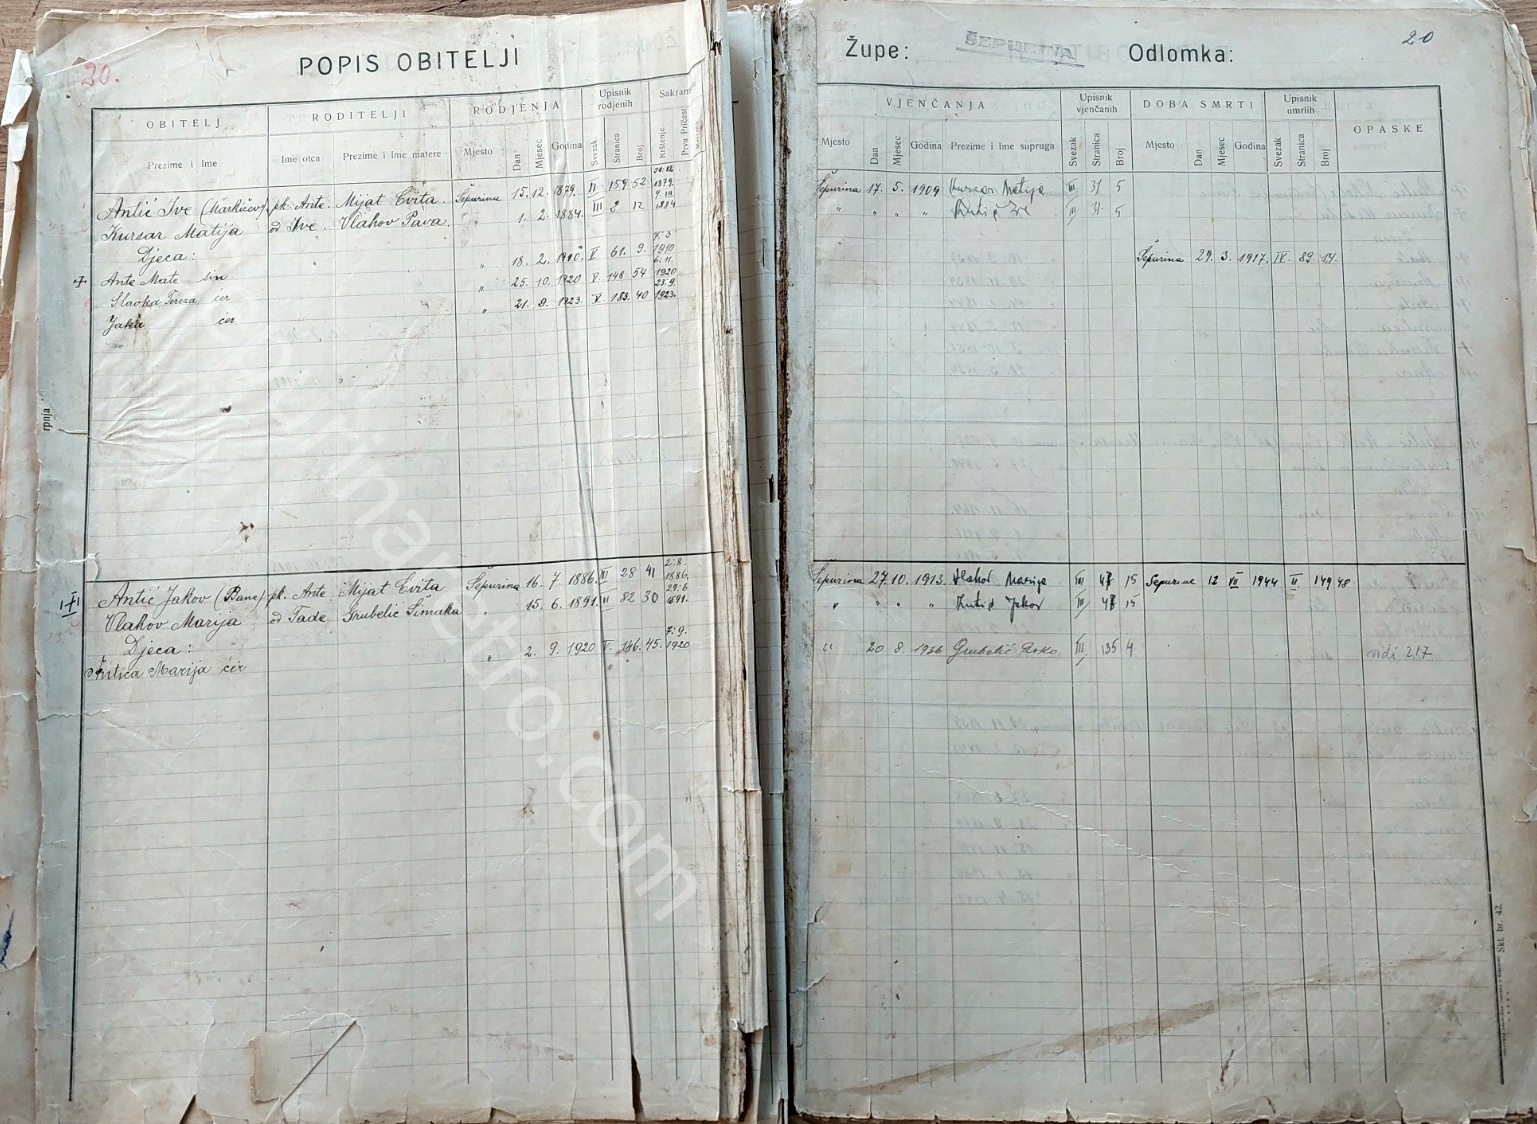 20.
POPIS OBITELJI
OBITELJ
RODITELJI
RODJENJA
Upisnik rodjenih
Sakram
Prezime i Ime
Ime otca
Prezime i Ime matere
Mjesto
Dan
Mjesec
Godina
Svezak
Stranica
Broj
Krštenje
Prva Pričest
Antić Ive (Markićev) pk. Ante Mijat Cvita Šepurina 15. 12. 1879. II 159 52 31.12. 1879.
Kursar Matija od Ive Vlahov Pava " 1. 2. 1884. III 2 12 9. III. 1884
Djeca:
+ Ante Mate sin " 18. 2. 1910. V 61. 9. 7.3 1910
Slavka Tereza ćer " 25. 10. 1920 V 148 54 6.11. 1920
Jaka ćer " 21. 8. 1923. V 183. 40 23.9. 1923.
rpnja
Antić Jakov (Bane) pk. Ante Mijat Cvita Šepurina 16. 7. 1886. III 28 41 2.8. 1886.
Vlahov Marija od Tade Grubelić Šimaka 15. 6. 1891. II 82 30 29.6. 1891.
Djeca:
Antica Marija ćer " 2. 9. 1920 V. 146. 45. 7.9. 1920
Župe: ŠEPURINA Odlomka:
20
VJENČANJA
Upisnik vjenčanih
DOBA SMRTI
Upisnik umrlih
OPASKE
Mjesto
Dan
Mjesec
Godina
Prezime i Ime supruga
Svezak
Stranica
Broj
Mjesto
Dan
Mjesec
Godina
Svezak
Stranica
Broj
Šepurina 17. 5. 1909 Kursar Matija III 31 5
" " " " Antić Ive III 31 5
Šepurina 29. 3. 1917. IV. 89. 14.
Šepurina 27. 10. 1913. Vlahov Marija III 47 15 Šepurina 12 VII 1944 II 149 48
" " " " Antić Jakov III 47 15
" 20 8. 1936 Grubelić Roko III 135 4 vidi 217
Skl. br. 42.
sepurinaretro.com